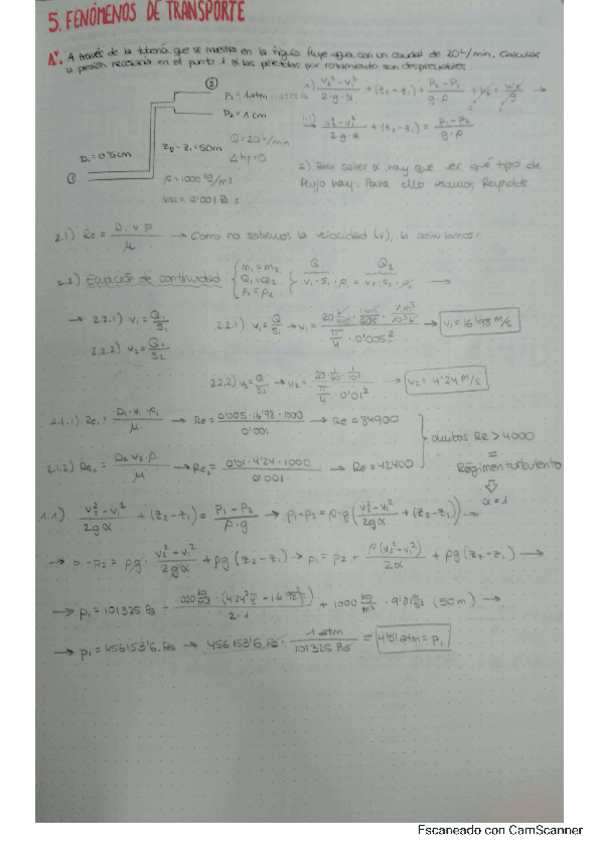 5. FENÓMENOS DE TRANSPORTE
1. A través de la tubería que se muestra en la figura fluye agua con un caudal de 20 L/min. Calcular
la presión necesaria en el punto 1 si las pérdidas por rozamiento son despreciables
②
P₂ = 1 atm = 101325 Pa
D₂ = 1 cm
D₁ = 0'5 cm
Z₂ - Z₁ = 50m
Q = 20 L/min
Δhf = 0
①
ρ = 1000 kg/m³
visc = 0'001 Pa·s
1) (v₂² - v₁²)/(2·g·α) + (z₂ - z₁) + (P₂ - P₁)/(g·ρ) + hf = W/g →
1.1) (v₂² - v₁²)/(2·g·α) + (z₂ - z₁) = (P₁ - P₂)/(g·ρ)
2) Para saber α hay que ver qué tipo de
flujo hay. Para ello usamos Reynolds
2.1) Re = (D₁ v ρ)/μ → Como no sabemos la velocidad (v), la calculamos:
2.2) Ecuación de continuidad { m₁ = m₂ Q₁ = Q₂ ρ₁ = ρ₂ } Q₁ Q₂ v₁·S₁·ρ₁ = v₂·S₂·ρ₂ →
→ 2.2.1) v₁ = Q₁/S₁
2.2.2) v₂ = Q₂/S₂
2.2.1) v₁ = Q/S₁ → v₁ = (20 L/min · 1min/60s · 1m³/10³L)/(π/4 · 0'005²) → v₁ = 16'98 m/s
2.2.2) v₂ = Q/S₂ → v₂ = (20 · 1/60 · 1/10³)/(π/4 · 0'01²) → v₂ = 4'24 m/s
2.1.1) Re₁ = (D₁·v₁·ρ₁)/μ → Re = (0'005·16'98·1000)/0'001 → Re = 84900
2.1.2) Re₂ = (D₂ v₂ ρ)/μ → Re₂ = (0'01·4'24·1000)/0'001 → Re = 42400
ambos Re > 4000
=
Régimen turbulento
⇩
α = 1
1.1) (v₂² - v₁²)/(2gα) + (z₂ - z₁) = (P₁ - P₂)/(ρ·g) → p₁ - p₂ = ρ·g((v₂² - v₁²)/(2gα) + (z₂ - z₁)) →
→ p₁ - p₂ = ρg · (v₂² - v₁²)/(2gα) + ρg·(z₂ - z₁) → p₁ = p₂ + ρ(v₂² - v₁²)/(2α) + ρg(z₂ - z₁) →
→ p₁ = 101325 Pa + (1000 kg/m³ · (4'24² - 16'98²))/(2·1) + 1000 kg/m³ · 9'81 m/s² (50 m) →
→ p₁ = 456153'6 Pa → 456153'6 Pa · 1 atm/101325 Pa = 4'51 atm = p₁
Escaneado con CamScanner